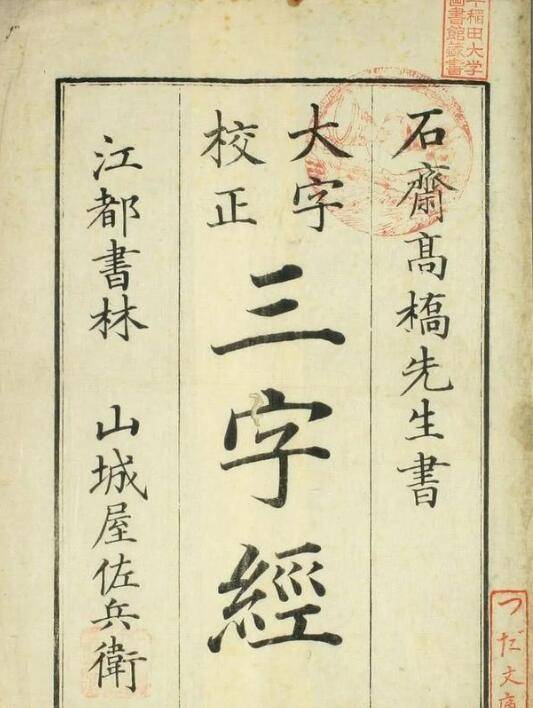 石齋髙橋先生書
大字
校正
三字經
江都書林 山城屋佐兵衛
早稲田大学
圖書館蔵書
つだ文庫